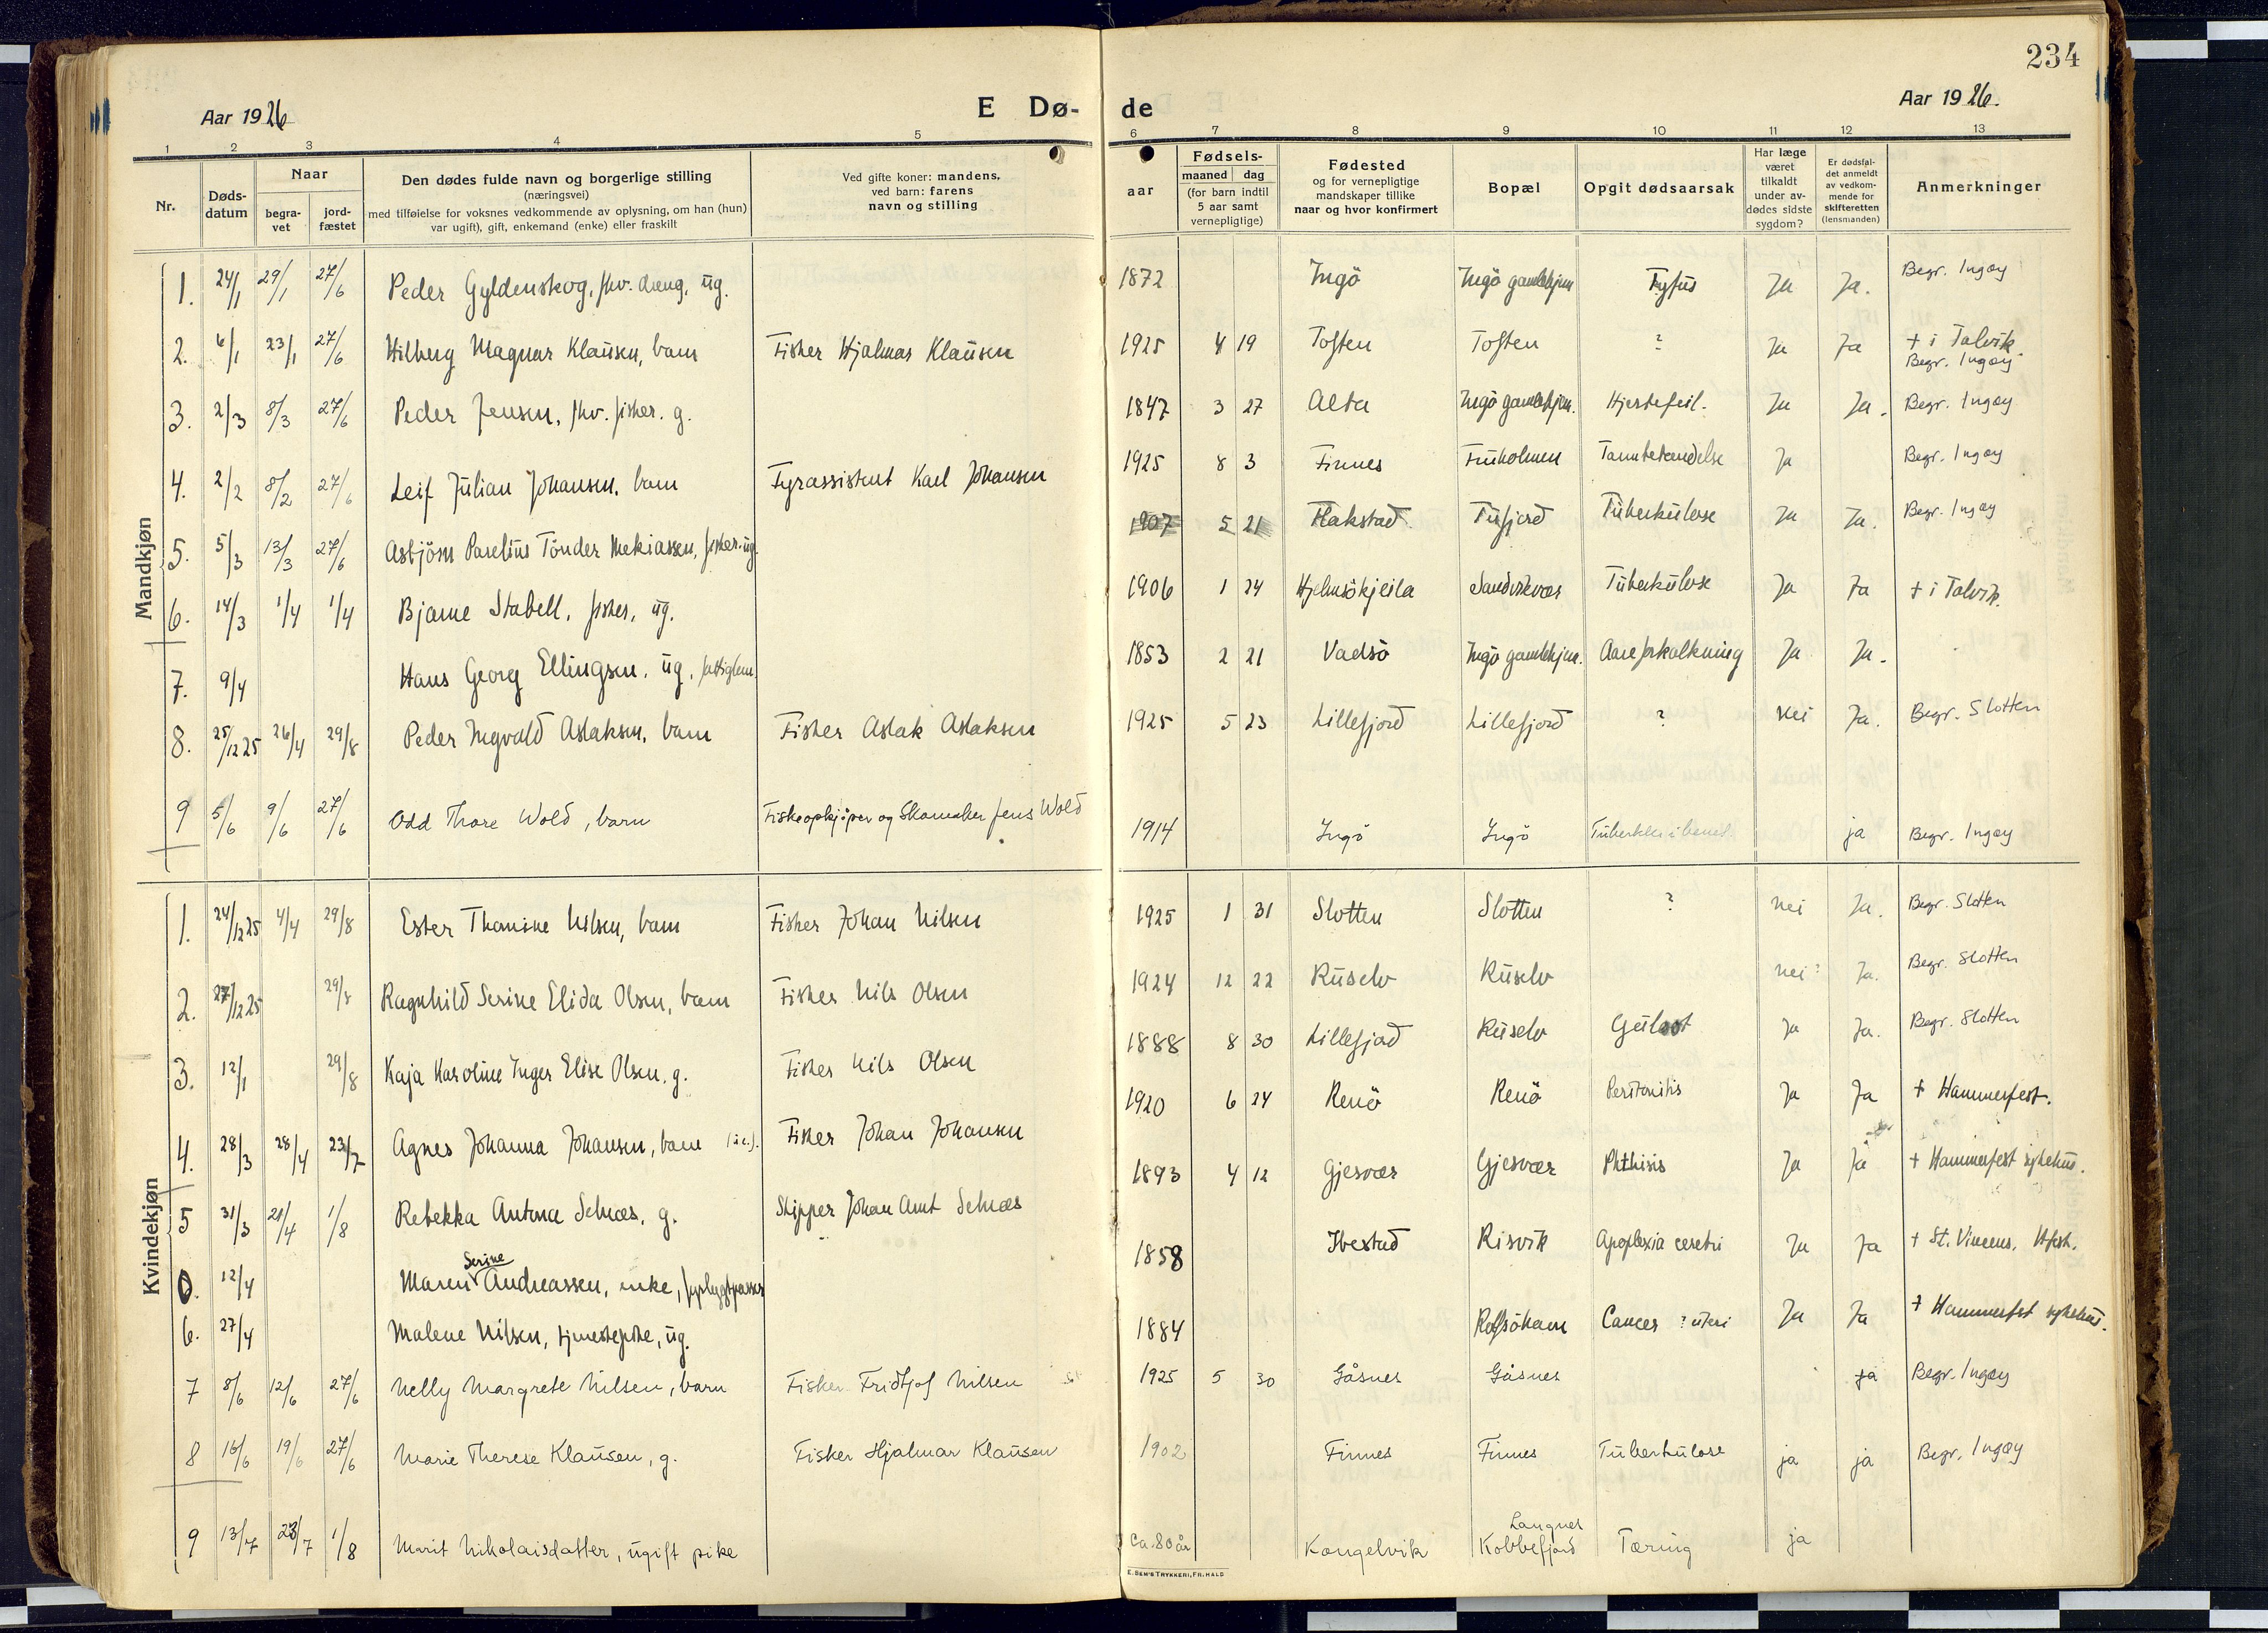 234
Aar 1926
E Dø-
de
Aar 1926.
1 2 3 4 5 6 7 8 9 10 11 12 13
Nr.
Døds-
datum
Naar
begra-
vet
jord-
fæstet
Den dødes fulde navn og borgerlige stilling
(næringsvei)
med tilføielse for voksnes vedkommende av oplysning, om han (hun)
var ugift), gift, enkemand (enke) eller fraskilt
Ved gifte koner: mandens,
ved barn: farens
navn og stilling
aar
Fødsels-
maaned dag
(for barn indtil
5 aar samt
vernepligtige)
Fødested
og for vernepligtige
mandskaper tillike
naar og hvor konfirmert
Bopæl
Opgit dødsaarsak
Har læge
været
tilkaldt
under av-
dødes sidste
sygdom?
Er dødsfal-
det anmeldt
av vedkom-
mende for
skifteretten
(lensmanden)
Anmerkninger
Mandkjøn
1. 24/1 29/1 27/6 Peder Gyldenskog, fhv. dreng, ug. 1872 Ingö Ingö gamlehjem Tyfus Ja Ja. Begr. Ingøy
2. 6/1 23/1 27/6 Hilberg Magnar Klausen, barn Fisker Hjalmar Klausen 1925 4 19 Toften Toften ? Ja Ja + i Talvik.
Begr. Ingøy
3. 2/3 8/3 27/6 Peder Jensen, fhv. fisker. g. 1847 3 27 Alta Ingö gamlehjem. Hjertefeil. Ja Ja. Begr. Ingøy
4. 2/2 8/2 27/6 Leif Julian Johansen, barn Fyrassistent Karl Johansen 1925 8 3 Finnes Fruholmen Tannbetendelse Ja Begr. Ingøy
5. 5/3 13/3 27/6 Asbjörn Parelius Tönder Mekiassen, fisker. ug. 1907 5 21 Flakstad Tufjord Tuberkulose Ja Ja. Begr. Ingøy
6. 14/3 1/4 1/4 Bjarne Stabell, fisker, ug. 1906 1 24 Hjelmsökjeila Sandvikvær Tuberkulose Ja Ja + i Talvik.
7. 9/4 Hans Georg Ellingsen, ug, fattiglem. 1853 2 21 Vadsö Ingö gamlehjem. Aareforkalkning Ja Ja.
8. 25/12 25 26/4 29/8 Peder Ingvald Aslaksen, barn Fisker Aslak Aslaksen 1925 5 23 Lillefjord Lillefjord ? Nei Ja. Begr. Slotten
9 5/6 9/6 27/6 Odd Thore Wold, barn Fiskeopkjöper og Skomaker Jens Wold 1914 Ingö Ingö ja Begr. Ingøy
Kvindekjøn
1. 24/12 25 4/4 29/8 Ester Thomine Nilsen, barn Fisker Johan Nilsen 1925 1 31 Slotten Slotten ? nei Ja. Begr. Slotten
2. 27/12 25 29/8 Ragnhild Serine Elida Olsen, barn Fisker Nils Olsen 1924 12 22 Ruselv Ruselv nei Ja. Begr. Slotten
3. 12/1 29/8 Kaja Karoline Inger Elise Olsen. g. Fisker Nils Olsen 1888 8 30 Lillefjord Ruselv Gulsot Ja Ja. Begr. Slotten
4. 28/3 28/4 23/7 Agnes Johanna Johansen, barn Fisker Johan Johansen 1920 6 24 Renö Renö Peritonitis Ja Ja + Hammerfest.
5 31/3 21/4 1/8 Rebekka Antona Selnæs, g. Skipper Johan Arnt Selnæs 1893 4 12 Gjesvær Gjesvær Phthisis Ja Ja + Hammerfest sykehus.
12/4 Maren Serine Andreassen, enke, 1858 Ibestad Risvik Apoplexia cerebri Ja Ja + St. Vincens, Hfest.
6. 27/4 Malene Nilsen, tjenestepike, ug. 1884 Rolfsöhavn Cancer ? uteri Ja Ja + Hammerfest sykehus.
7 8/6 12/6 27/6 Nelly Margrete Nilsen, barn Fisker Fridtjof Nilsen 1925 5 30 Gåsnes Gåsnes Ja Begr. Ingøy
8 16/6 19/6 27/6 Marie Therese Klausen, g. Fisker Hjalmar Klausen 1902 Finnes Finnes Tuberkulose ja ja Begr. Ingøy
9 13/7 23/7 1/8 Marit Nikolaisdatter, ugift pike ca. 80 år Kongelvik Langnes
Kobbefjord Tæring ja
E. SEM'S TRYKKERI, FR. HALD